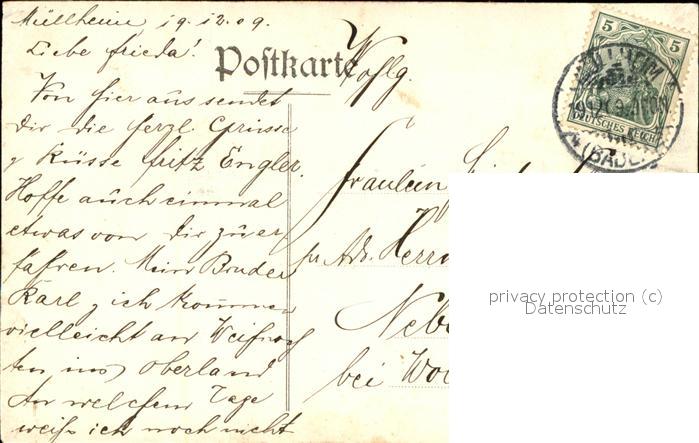 Müllheim 19.12.09.
Liebe Frieda!
Postkarte
Wohlg.
Von hier aus sendet
dir die herzl. Grüsse
& Küsse Fritz Engler.
Hoffe auch einmal
etwas von dir zu er
fahren. Mein Bruder
Karl & ich kommen
vielleicht an Weihnach
ten ins Oberland
An welchem Tage
weiß ich noch nicht
Fräulein
pr. Adr. Herrn
Neb
bei Wo
5 5
DEUTSCHES REICH
MÜLLHEIM
(BADEN)
privacy protection (c)
Datenschutz